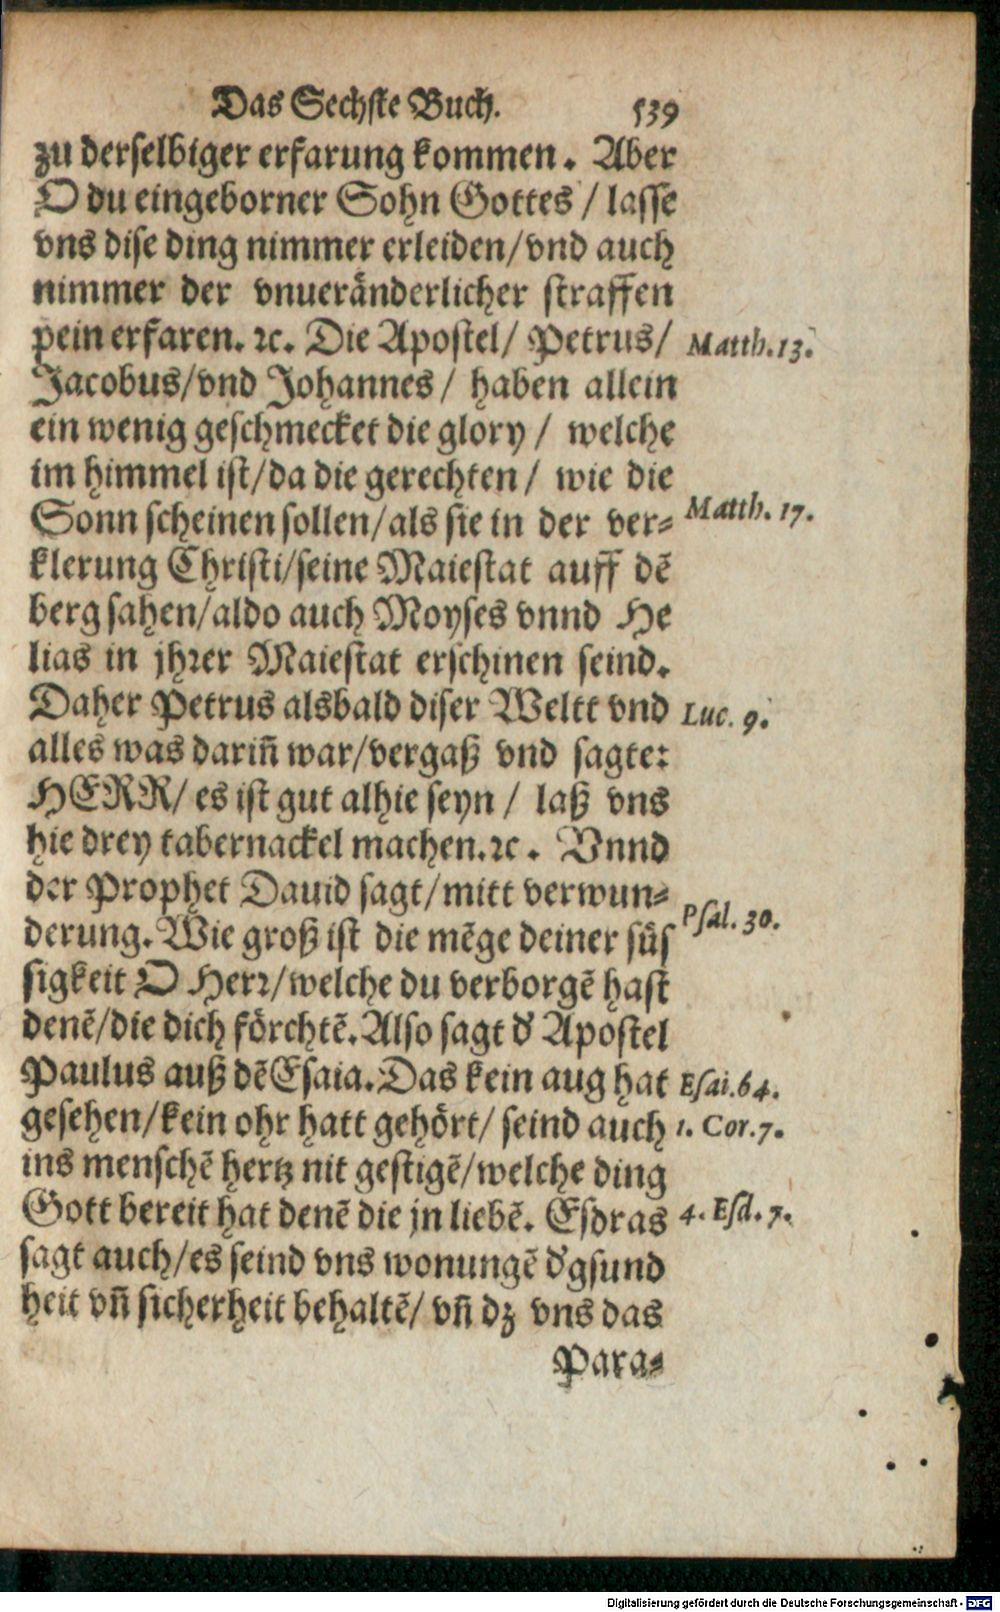 Das Sechste Buch. 539
zu derselbiger erfarung kommen. Aber
O du eingeborner Sohn Gottes / lasse
vns dise ding nimmer erleiden/vnd auch
nimmer der vnueränderlicher straffen
pein erfaren. ꝛc. Die Apostel/ Petrus/ Matth.13.
Jacobus/vnd Johannes / haben allein
ein wenig geschmecket die glory / welche
im himmel ist/da die gerechten / wie die
Sonn scheinen sollen/als sie in der ver⸗ Matth. 17.
klerung Christi/seine Maiestat auff dẽ
berg sahen/aldo auch Moyses vnnd He
lias in jhrer Maiestat erschinen seind.
Daher Petrus alsbald diser Weltt vnd Luc. 9.
alles was dariñ war/vergaß vnd sagte:
HERR/ es ist gut alhie seyn / laß vns
hie drey tabernackel machen.ꝛc. Vnnd
der Prophet Dauid sagt/mitt verwun⸗
derung. Wie groß ist die mẽge deiner süs Psal. 30.
sigkeit O Herr/welche du verborgẽ hast
denẽ/die dich förchtẽ. Also sagt d' Apostel
Paulus auß dẽ Esaia. Das kein aug hat Esai.64.
gesehen/kein ohr hatt gehört/ seind auch 1. Cor.7.
ins menschẽ hertz nit gestigẽ/welche ding
Gott bereit hat denẽ die jn liebẽ. Esdras 4. Esd. 7.
sagt auch/es seind vns wonungẽ d'gsund
heit vñ sicherheit behaltẽ/ vñ dz vns das
Para⸗
Digitalisierung gefördert durch die Deutsche Forschungsgemeinschaft - DFG